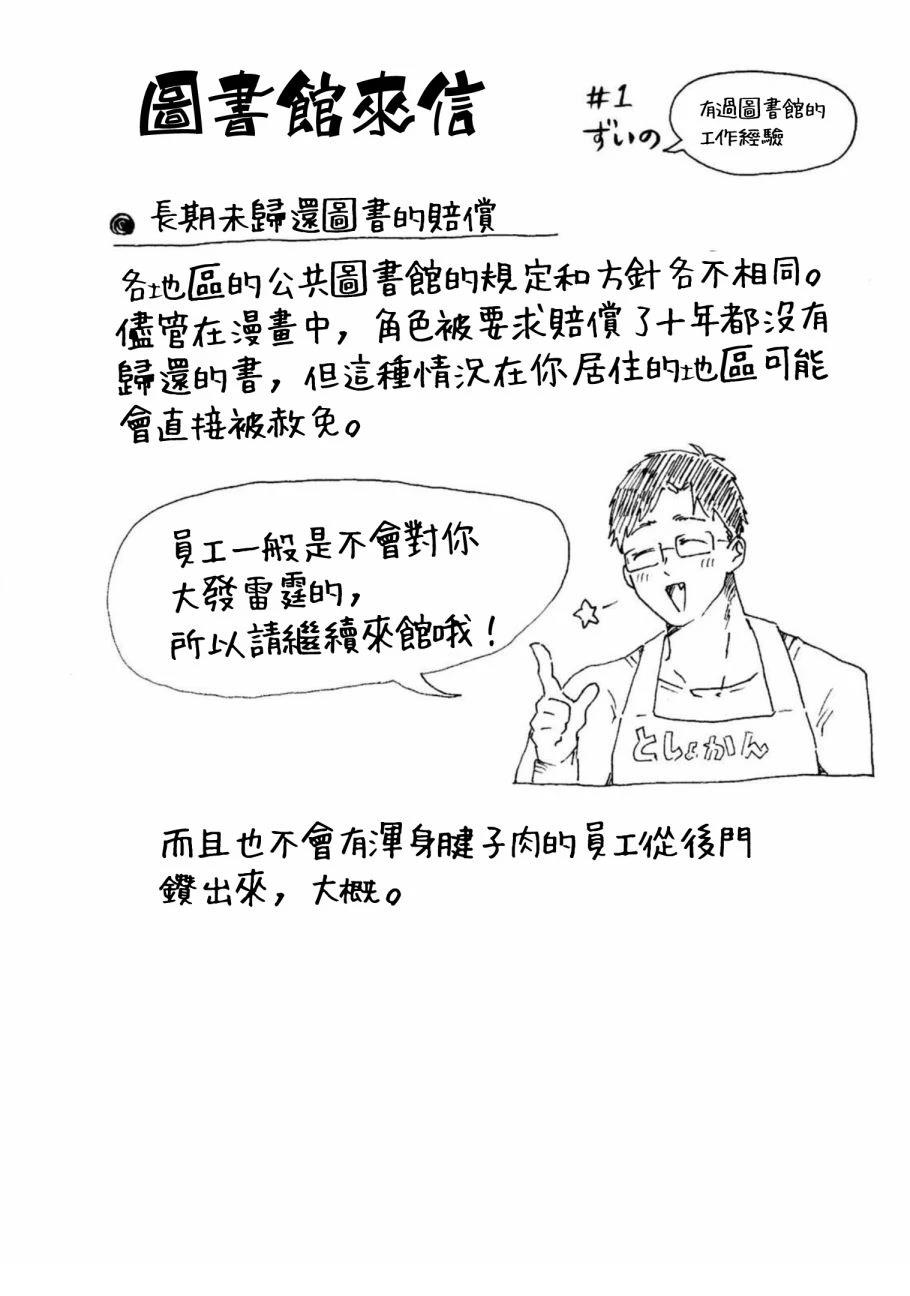 圖書館來信
#1
ずいの
有過圖書館的
工作經驗
長期未歸還圖書的賠償
各地區的公共圖書館的規定和方針各不相同。
儘管在漫畫中，角色被要求賠償了十年都沒有
歸還的書，但這種情況在你居住的地區可能
會直接被赦免。
員工一般是不會對你
大發雷霆的，
所以請繼續來館哦！
としょかん
而且也不會有渾身腱子肉的員工從後門
鑽出來，大概。